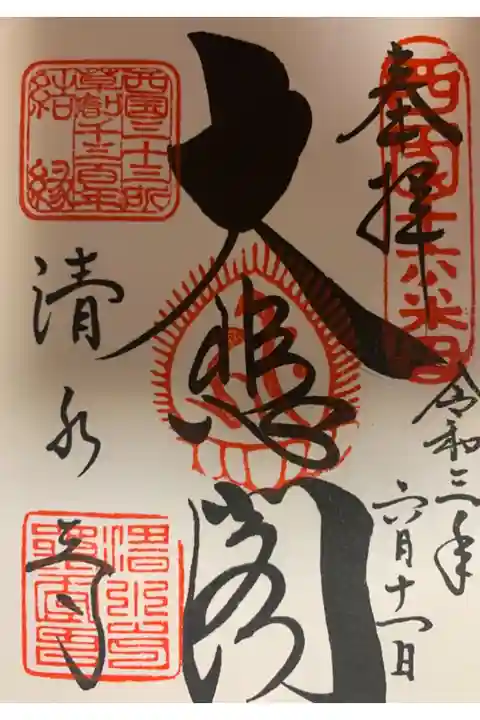 奉拝
令和三年
六月十一日
大悲閣
西国三十三所
草創千三百年
結縁
清水寺